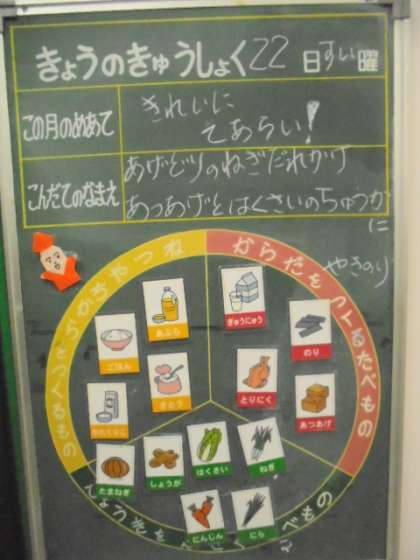 きょうのきゅうしょく 22 日 すい 曜
この月のめあて
きれいに
てあらい!
こんだてのなまえ
あげどりのねぎだれがけ
あつあげとはくさいのちゅうか
に
やきのり
ねつやちからをつくるもの
からだをつくるたべもの
あぶら
ごはん
さとう
ぎゅうにゅう
のり
とりにく
あつあげ
たまねぎ
しょうが
はくさい
ねぎ
にんじん
にら